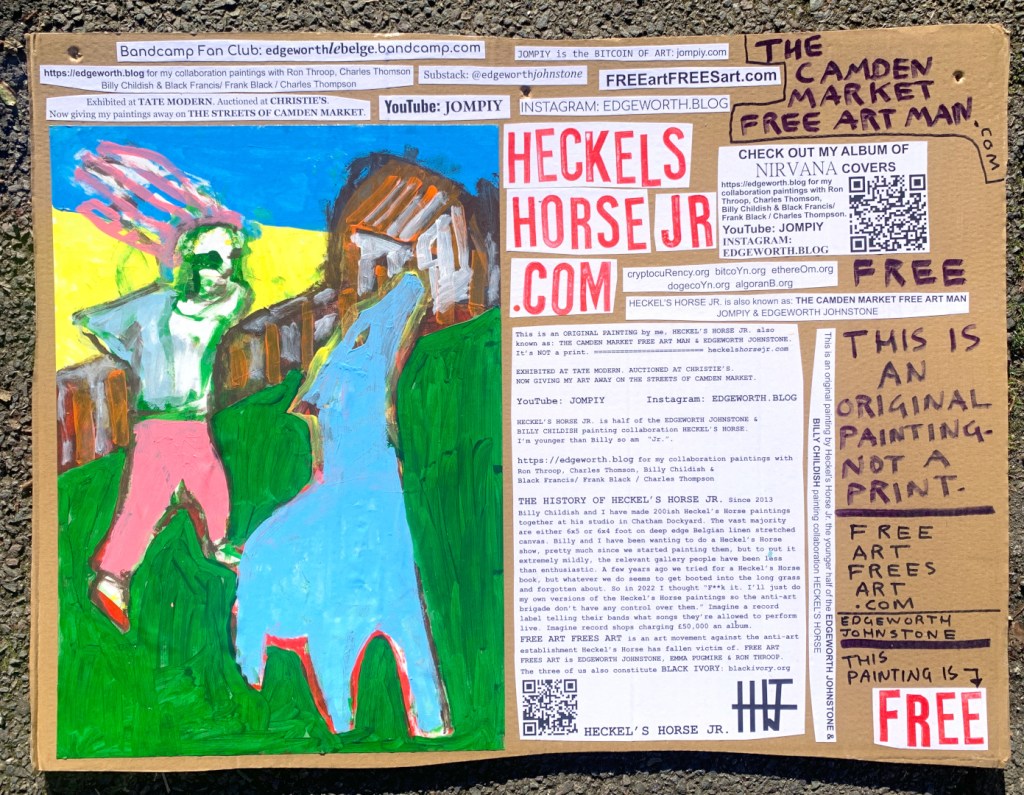 Bandcamp Fan Club: edgeworthlebelge.bandcamp.com
JOMPIY is the BITCOIN OF ART: jompiy.com
https://edgeworth.blog for my collaboration paintings with Ron Throop, Charles Thomson
Billy Childish & Black Francis/ Frank Black / Charles Thompson
Substack: @edgeworthjohnstone
FREEartFREESart.com
Exhibited at TATE MODERN. Auctioned at CHRISTIE'S.
Now giving my paintings away on THE STREETS OF CAMDEN MARKET.
YouTube: JOMPIY
INSTAGRAM: EDGEWORTH.BLOG
THE
CAMDEN
MARKET
FREE ART MAN
.com
HECKELS
HORSE JR
.COM
CHECK OUT MY ALBUM OF
NIRVANA COVERS
https://edgeworth.blog for my
collaboration paintings with Ron
Throop, Charles Thomson,
Billy Childish & Black Francis/
Frank Black / Charles Thompson.
YouTube: JOMPIY
INSTAGRAM:
EDGEWORTH.BLOG
cryptocuRency.org bitcoYn.org ethereOm.org
dogecoYn.org algoranB.org
FREE
HECKEL'S HORSE JR. is also known as: THE CAMDEN MARKET FREE ART MAN
JOMPIY & EDGEWORTH JOHNSTONE
This is an ORIGINAL PAINTING by me, HECKEL'S HORSE JR. also
known as: THE CAMDEN MARKET FREE ART MAN & EDGEWORTH JOHNSTONE.
It's NOT a print. ========================= heckelshorsejr.com
EXHIBITED AT TATE MODERN. AUCTIONED AT CHRISTIE'S.
NOW GIVING MY ART AWAY ON THE STREETS OF CAMDEN MARKET.
YouTube: JOMPIY Instagram: EDGEWORTH.BLOG
HECKEL'S HORSE JR. is half of the EDGEWORTH JOHNSTONE &
BILLY CHILDISH painting collaboration HECKEL'S HORSE.
I'm younger than Billy so am "Jr.".
https://edgeworth.blog for my collaboration paintings with
Ron Throop, Charles Thomson, Billy Childish &
Black Francis/ Frank Black / Charles Thompson
THE HISTORY OF HECKEL'S HORSE JR. Since 2013
Billy Childish and I have made 200ish Heckel's Horse paintings
together at his studio in Chatham Dockyard. The vast majority
are either 6x5 or 6x4 foot on deep edge Belgian linen stretched
canvas. Billy and I have been wanting to do a Heckel's Horse
show, pretty much since we started painting them, but to put it
extremely mildly, the relevant gallery people have been less
than enthusiastic. A few years ago we tried for a Heckel's Horse
book, but whatever we do seems to get booted into the long grass
and forgotten about. So in 2022 I thought "F**k it. I'll just do
my own versions of the Heckel's Horse paintings so the anti-art
brigade don't have any control over them." Imagine a record
label telling their bands what songs they're allowed to perform
live. Imagine record shops charging £50,000 an album.
FREE ART FREES ART is an art movement against the anti-art
establishment Heckel's Horse has fallen victim of. FREE ART
FREES ART is EDGEWORTH JOHNSTONE, EMMA PUGMIRE & RON THROOP.
The three of us also constitute BLACK IVORY: blackivory.org
HECKEL'S HORSE JR.
HJ
This is an original painting by Heckel's Horse Jr. the younger half of the EDGEWORTH JOHNSTONE &
BILLY CHILDISH painting collaboration HECKEL'S HORSE
THIS IS
AN
ORIGINAL
PAINTING.
NOT A
PRINT.
FREE
ART
FREES
ART
.COM
EDGEWORTH
JOHNSTONE
THIS
PAINTING IS
FREE